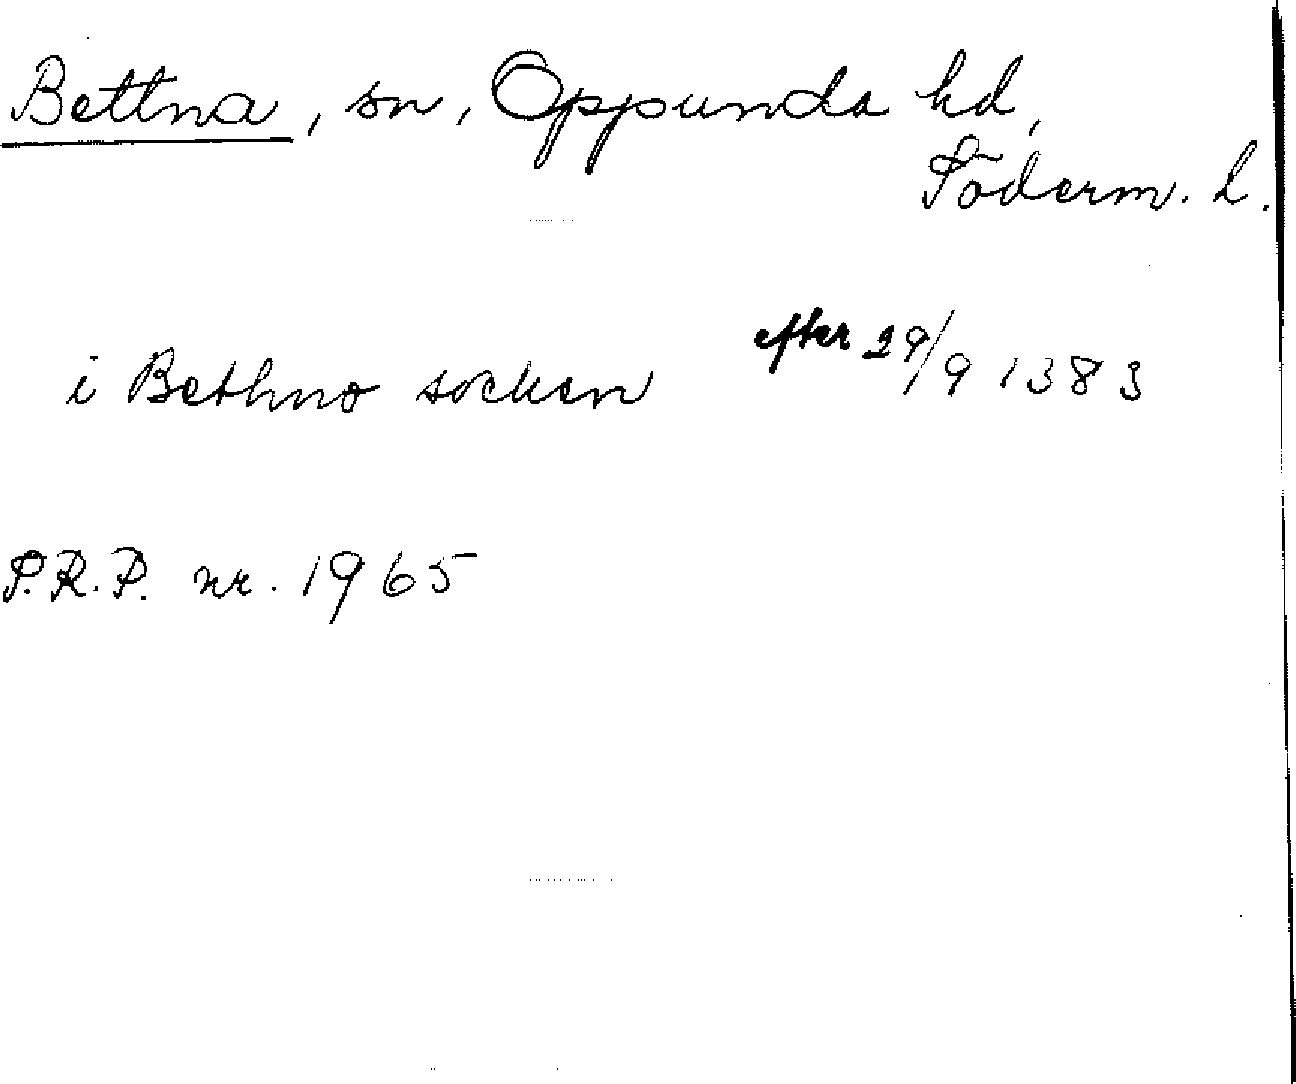 Bettna, sn, Oppunda hd,
Söderm. l.
i Bethno socken efter 29/9 1383
S.R.P. nr. 1965